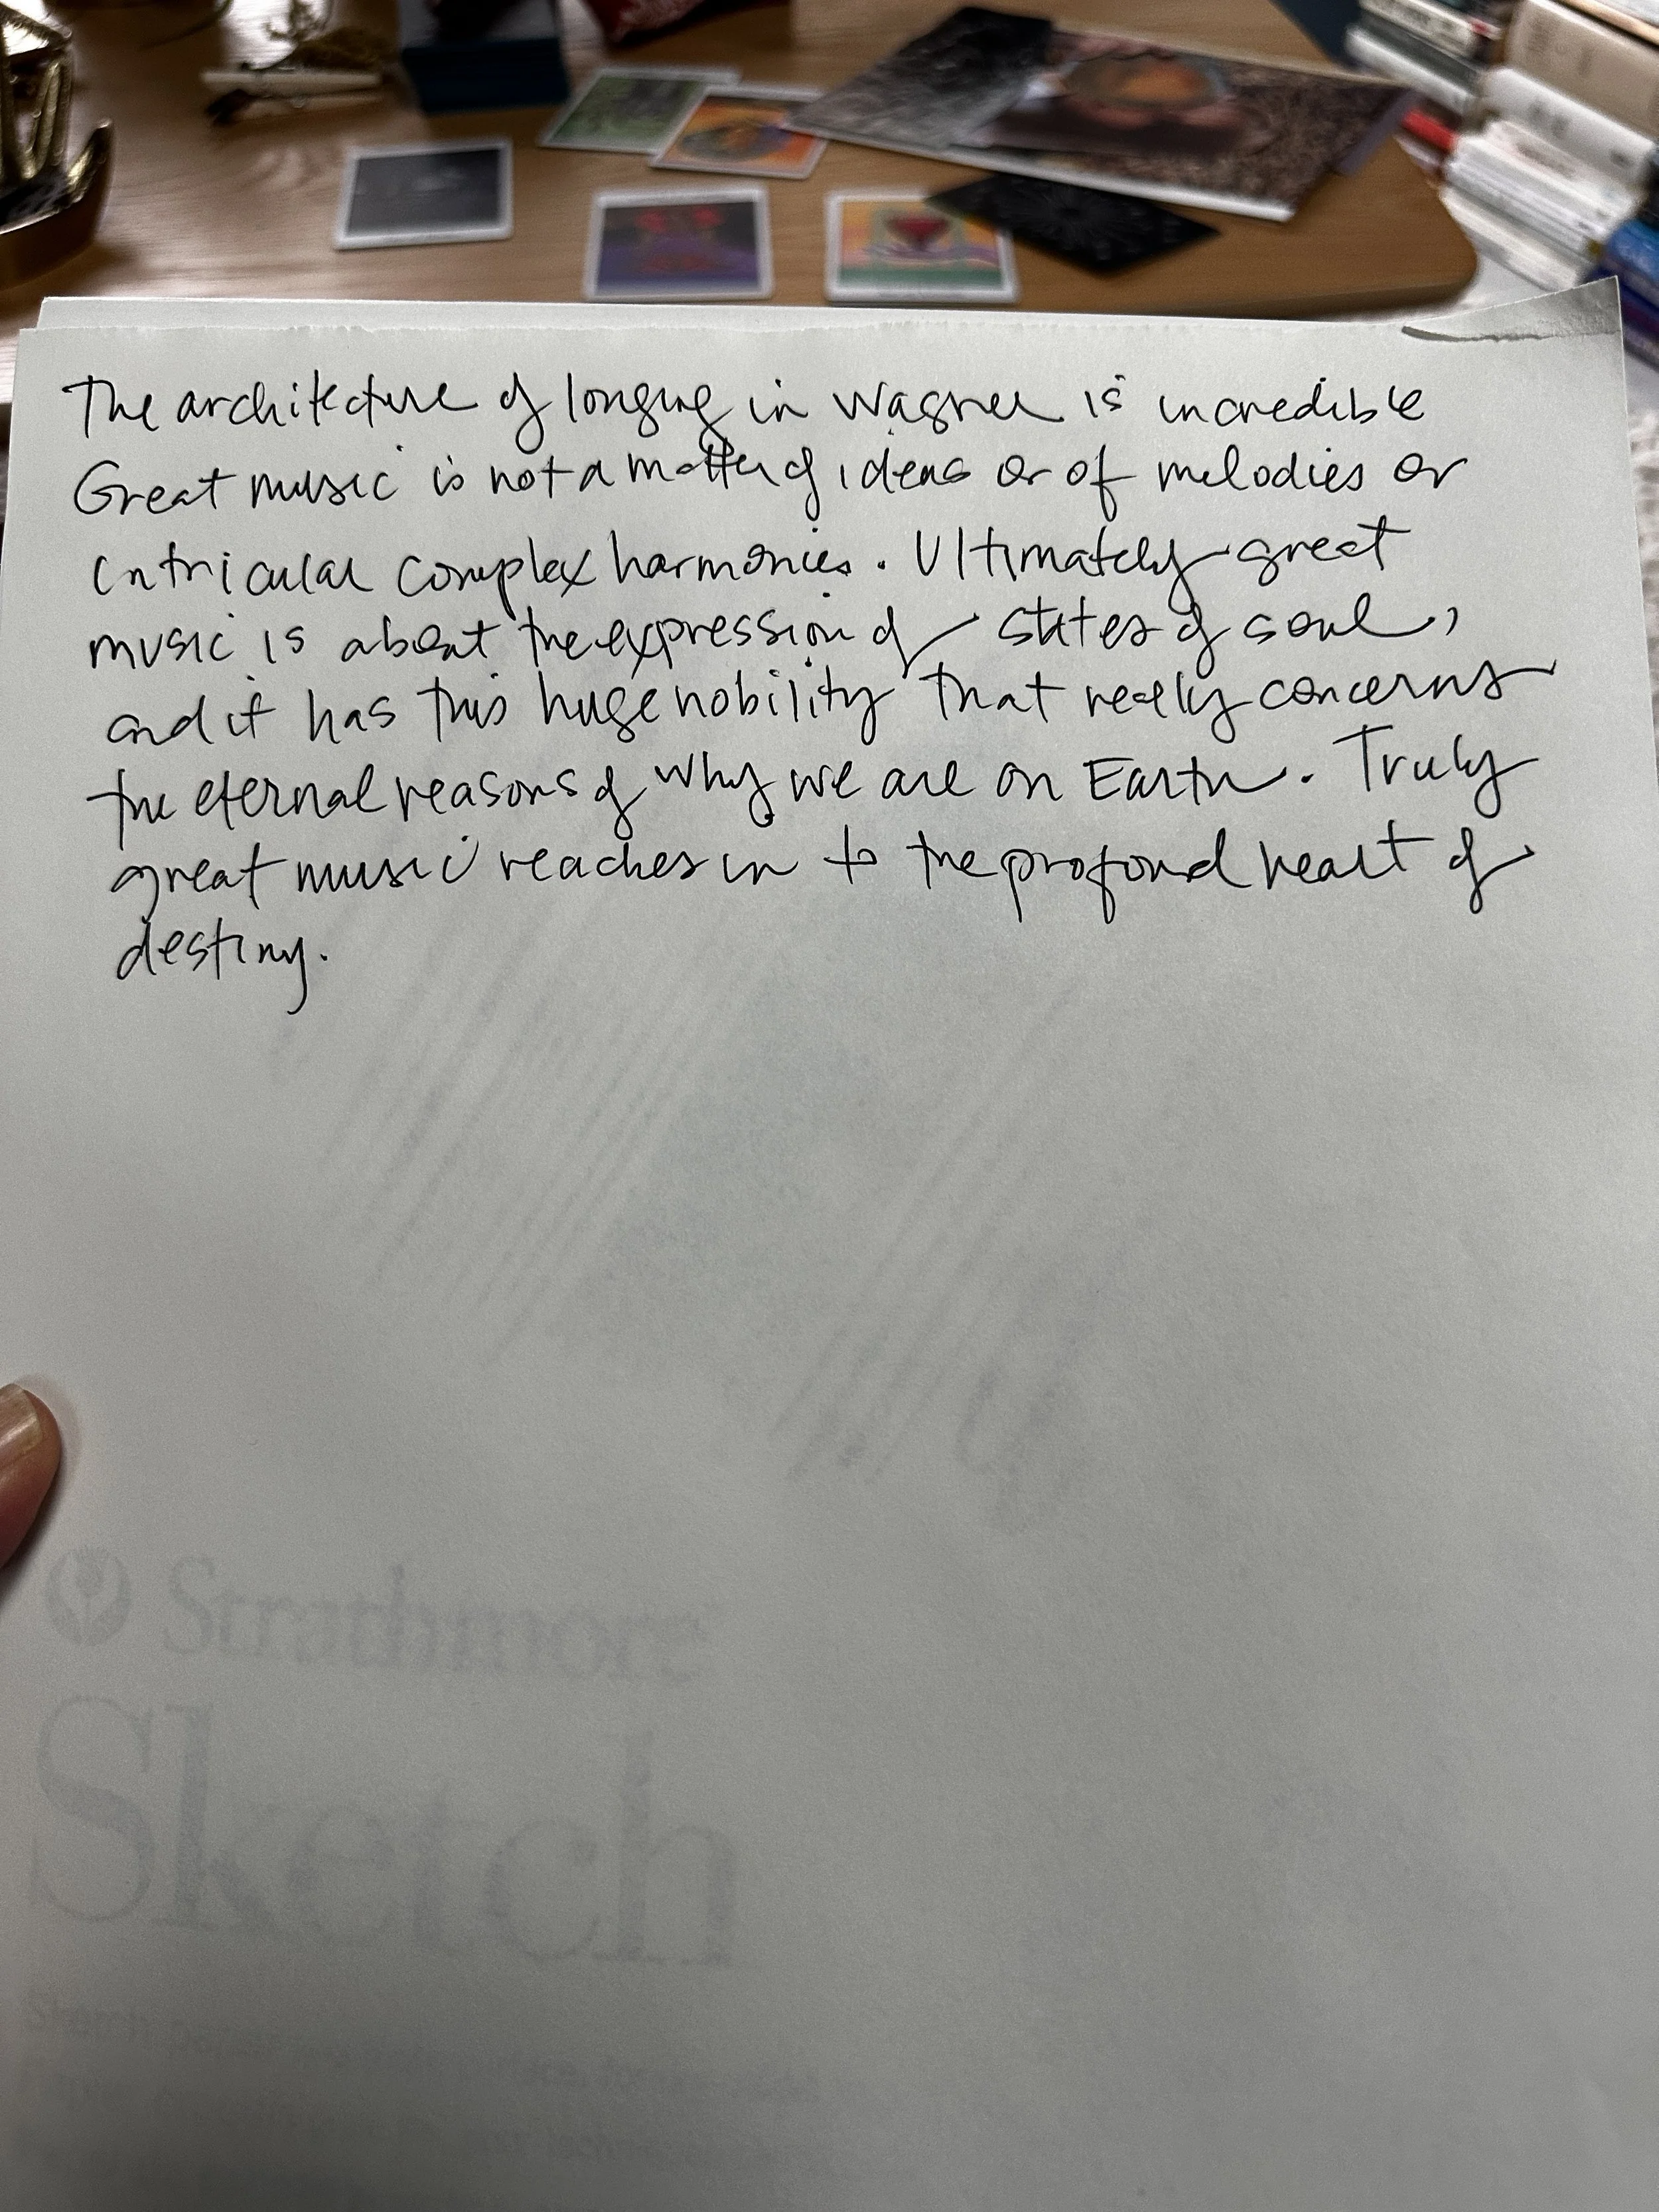 The architecture of longing in Wagner is incredible
Great music is not a matter of ideas or of melodies or
intricular complex harmonies. Ultimately great
music is about the expression of states of soul,
and it has this huge nobility that really concerns
the eternal reasons of why we are on Earth. Truly
great music reaches in to the profond heart of
destiny.
Strathmore
Sketch